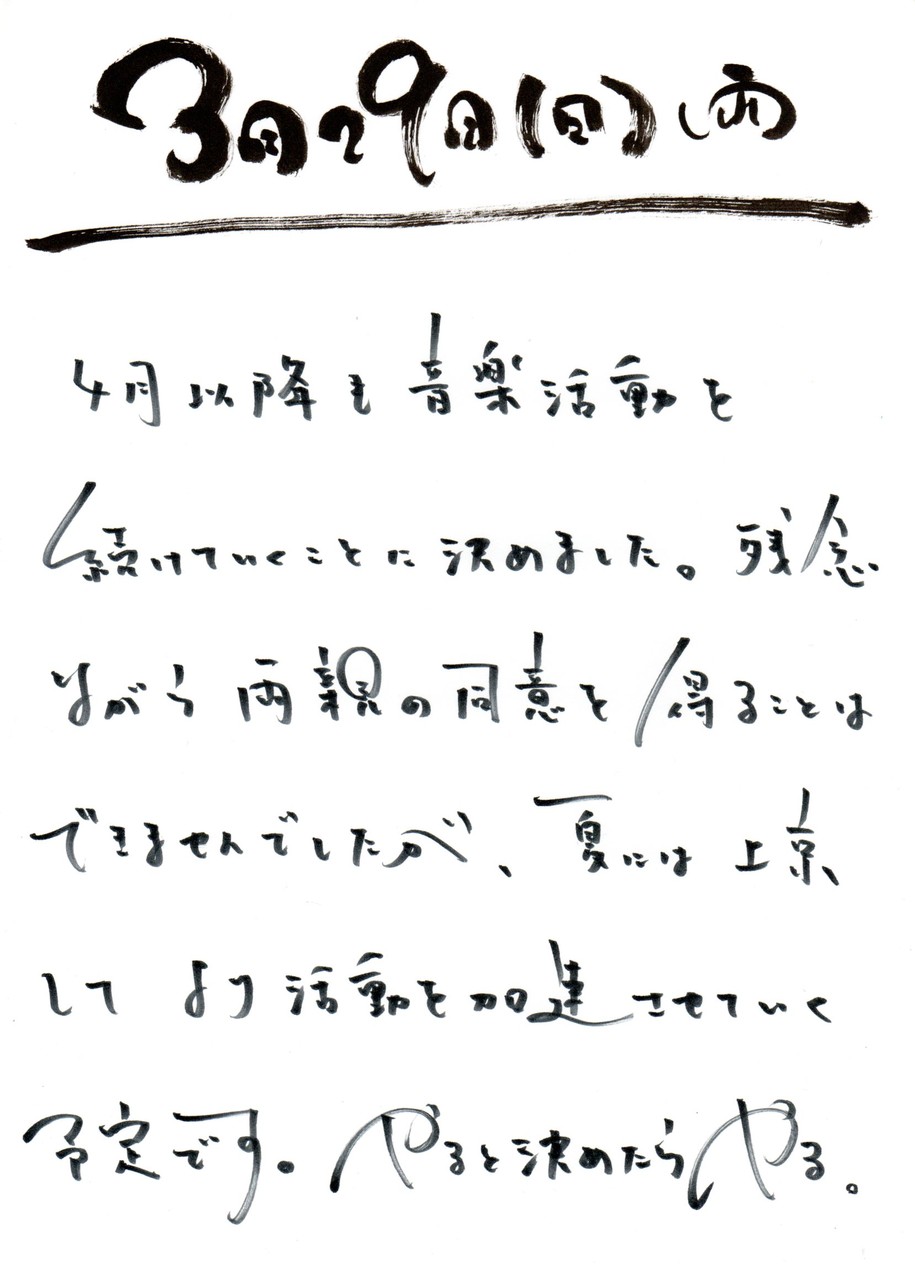 3月29日(日)(雨)
4月以降も音楽活動を
続けていくことに決めました。残念
ながら両親の同意を得ることは
できませんでしたが、夏には上京
してより活動を加速させていく
予定です。やると決めたらやる。